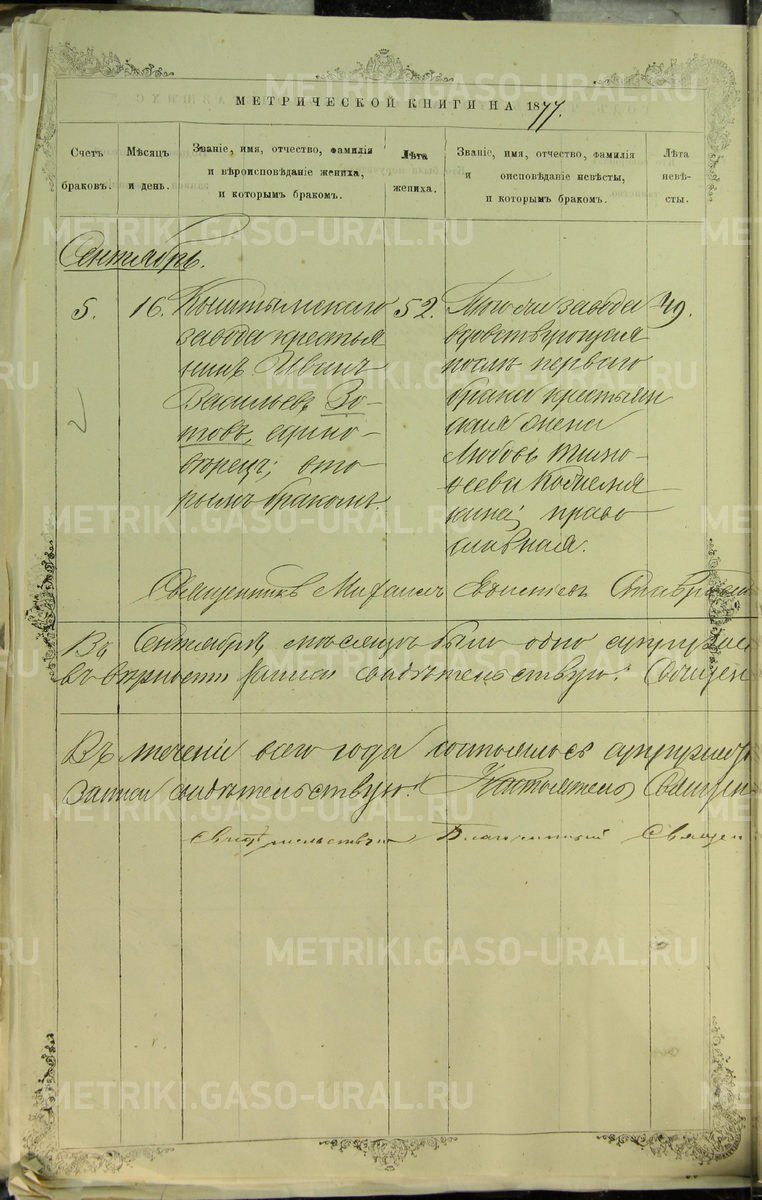 МЕТРИЧЕСКОЙ КНИГИ НА 1877.
Счетъ браковъ.
Мѣсяцъ и день.
Званіе, имя, отчество, фамилія и вѣроисповѣданіе жениха, и которымъ бракомъ.
Лѣта жениха.
Званіе, имя, отчество, фамилія и оисповѣданіе невѣсты, и которымъ бракомъ.
Лѣта невѣ-сты.
Сентябрь.
5.
16.
Кыштымскаго
завода крестья
нинъ Иванъ
Васильевъ Зо-
товъ, едино-
верецъ; вто-
рымъ бракомъ.
52.
завода
вдовствующая
послѣ перваго
брака крестьян
ская жена
Любовь
православ
славная.
49.
Священникъ Михаилъ
Въ Сентябрѣ мѣсяцѣ было одно супруже
въ верности записи свидѣтельствую: Священ
Въ теченіи всего года состоялось супружес
Записи свидѣтельствую: Настоятель Священ-
Благочинный Священ
METRIKI.GASO-URAL.RU